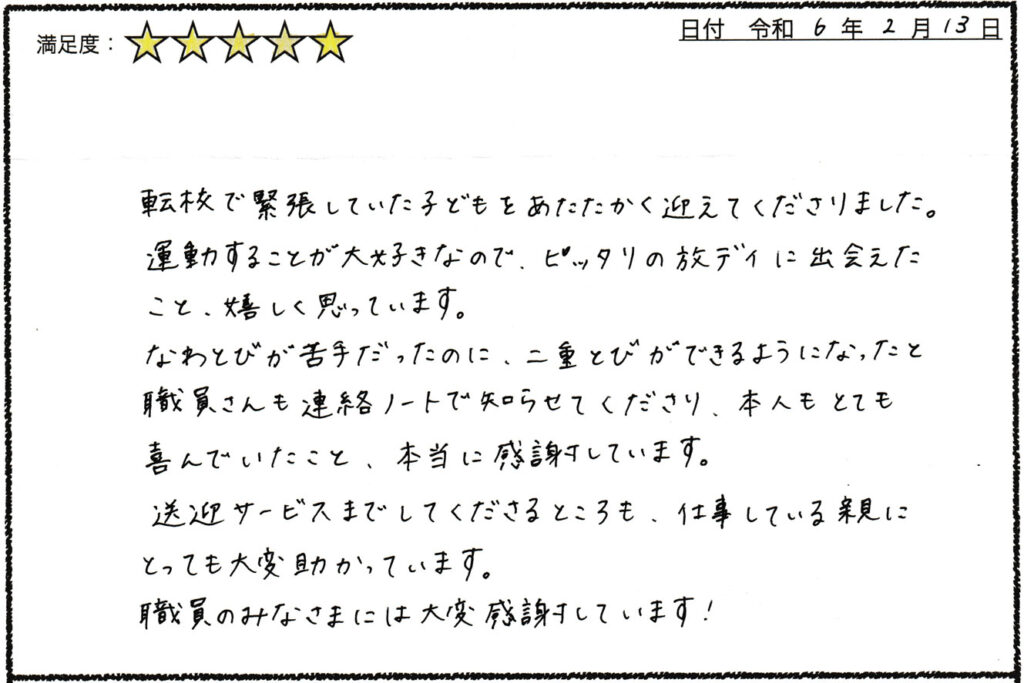 満足度：
日付 令和 6 年 2 月 13 日
転校で緊張していた子どもをあたたかく迎えてくださりました。
運動することが大好きなので、ピッタリの放デイに出会えた
こと、嬉しく思っています。
なわとびが苦手だったのに、二重とびができるようになったと
職員さんも連絡ノートで知らせてくださり、本人もとても
喜んでいたこと、本当に感謝しています。
送迎サービスまでしてくださるところも、仕事している親に
とっても大変助かっています。
職員のみなさまには大変感謝しています！